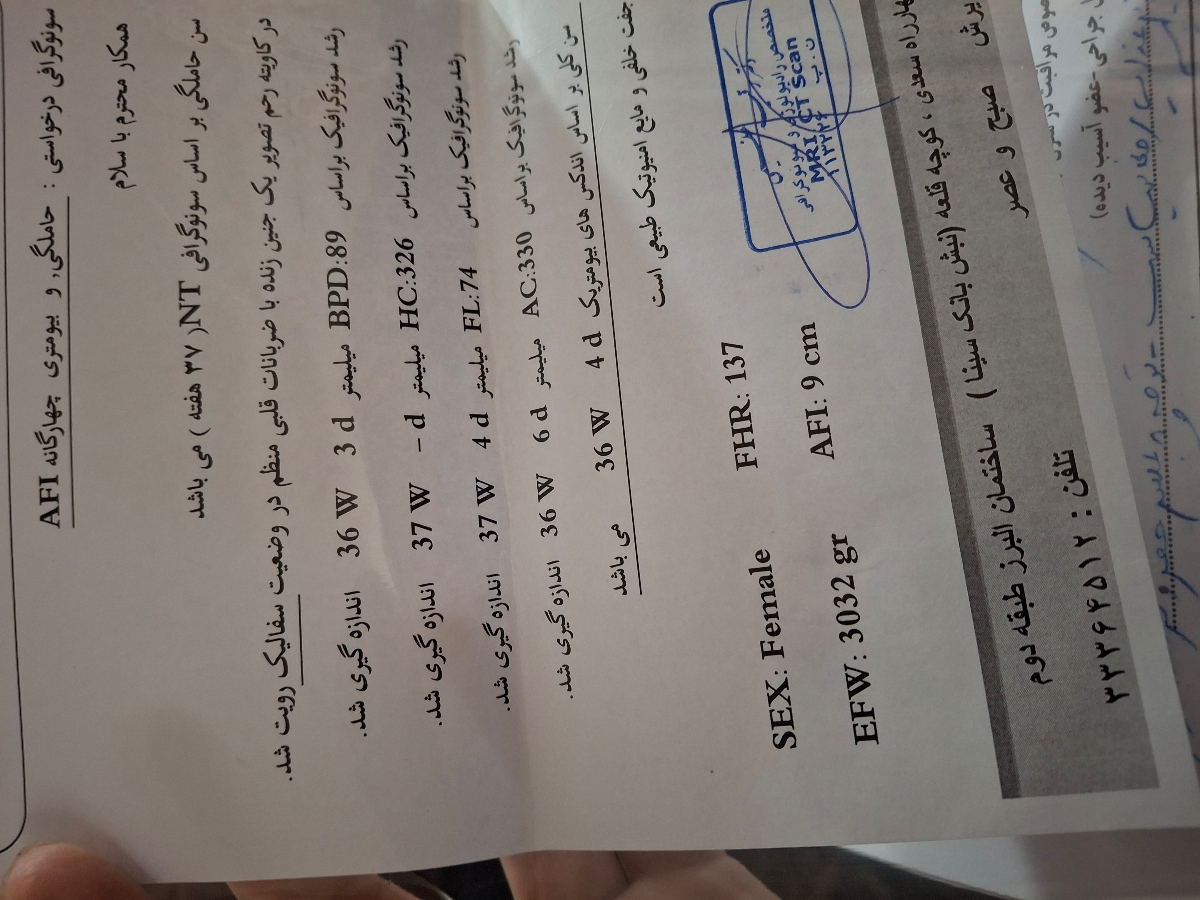 سونوگرافی درخواستی : حاملگی، و بیومتری چهارگانه AFI
همکار محترم با سلام
سن حاملگی بر اساس سونوگرافی NT( ۳۷ هفته ) می باشد
در کاویته رحم تصویر یک جنین زنده با ضربانات قلبی منظم در وضعیت سفالیک رویت شد.
رشد سونوگرافیک براساس BPD:89 میلیمتر 36 W 3 d اندازه گیری شد.
رشد سونوگرافیک براساس HC:326 میلیمتر 37 W – d اندازه گیری شد.
رشد سونوگرافیک براساس FL:74 میلیمتر 37 W 4 d اندازه گیری شد.
رشد سونوگرافیک براساس AC:330 میلیمتر 36 W 6 d اندازه گیری شد.
سن کلی بر اساس اندکس های بیومتریک 36 W 4 d می باشد
جفت خلفی و مایع امنیوتیک طبیعی است
SEX: Female FHR: 137
EFW: 3032 gr AFI: 9 cm
متخصص رادیولوژی و سونوگرافی
MRI, CT Scan
ن.پ
چهارراه سعدی ، کوچه قلعه (نبش بانک سینا ) ساختمان البرز طبقه دوم
صبح و عصر
تلفن : ۳۳۳۶۴۵۱۲
جراحی -عضو آسیب دیده)